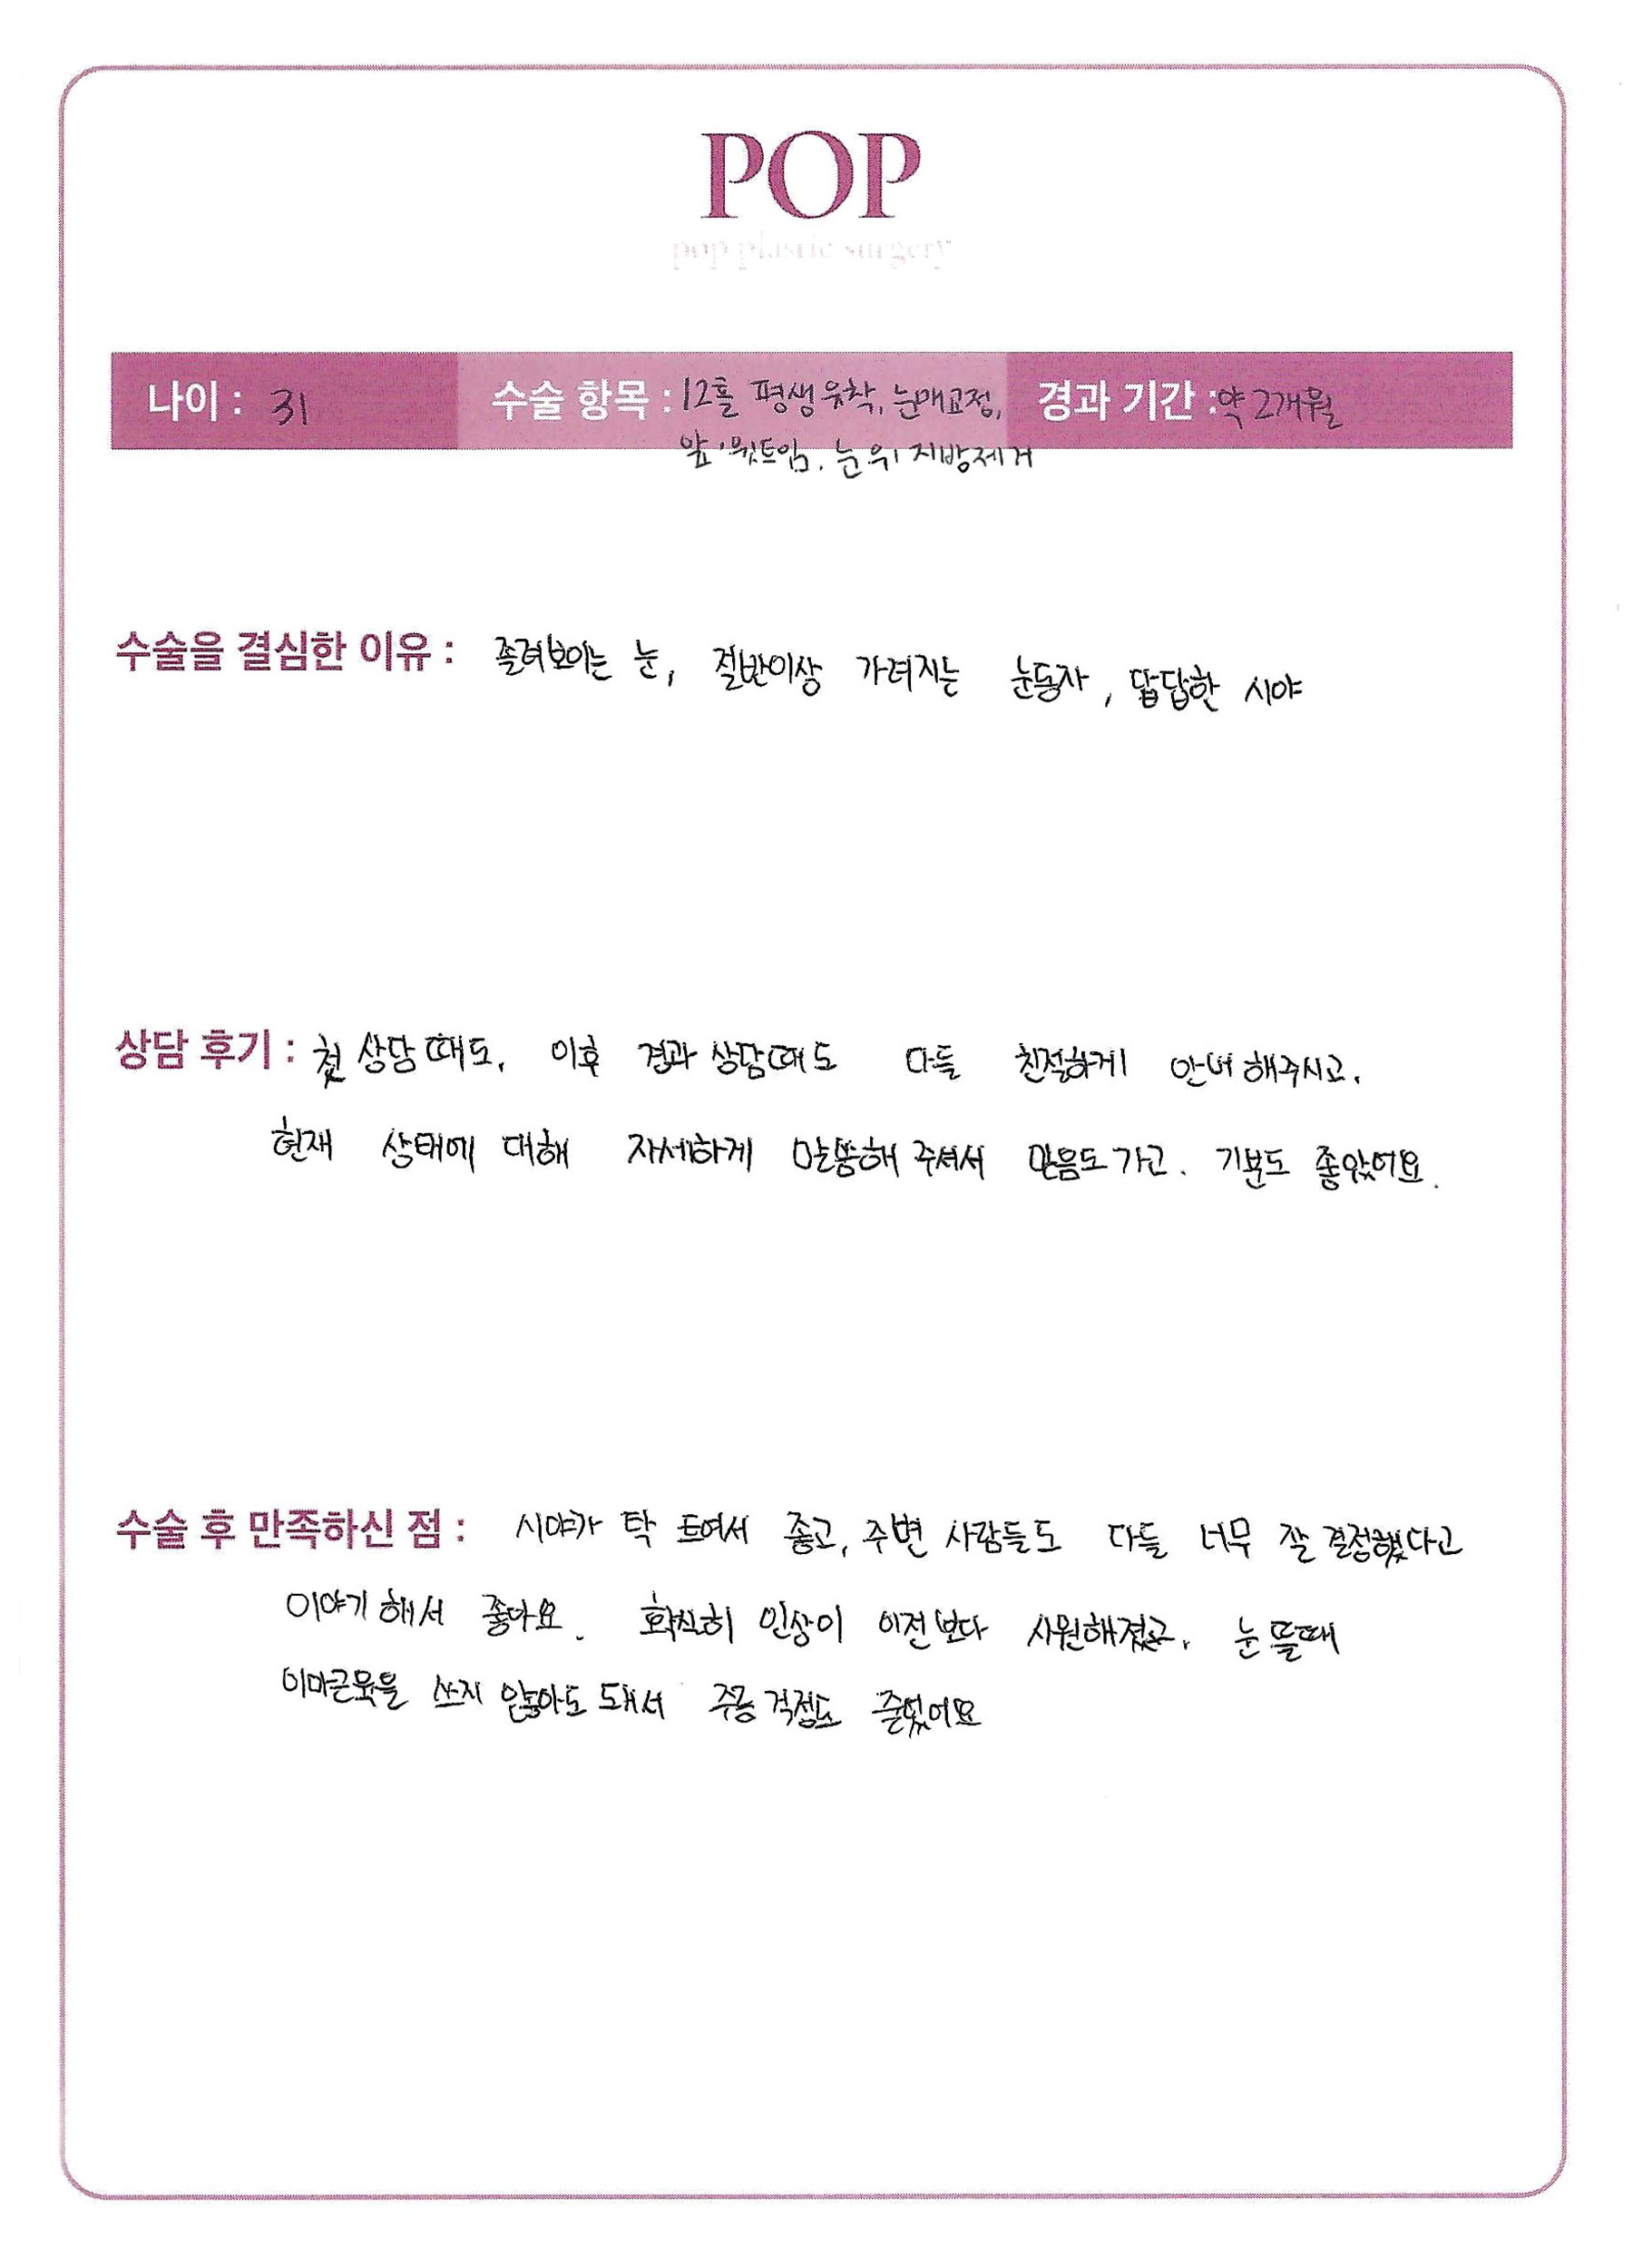 POP
pop plastic surgery
나이 : 31 수술 항목 : 12홀 평생유착, 눈매교정, 경과 기간 : 약 2개월
앞·뒷트임, 눈 위 지방제거
수술을 결심한 이유 : 졸려보이는 눈, 절반이상 가려지는 눈동자, 답답한 시야
상담 후기 : 첫 상담때도, 이후 경과 상담때도 다들 친절하게 안내해주시고,
현재 상태에 대해 자세하게 말씀해 주셔서 믿음도 가고, 기분도 좋았어요.
수술 후 만족하신 점 : 시야가 탁 트여서 좋고, 주변 사람들도 다들 너무 잘 결정했다고
이야기 해서 좋아요. 확실히 인상이 이전보다 시원해졌고, 눈 뜰때
이마근육을 쓰지 않아도 돼서 주름 걱정도 줄었어요